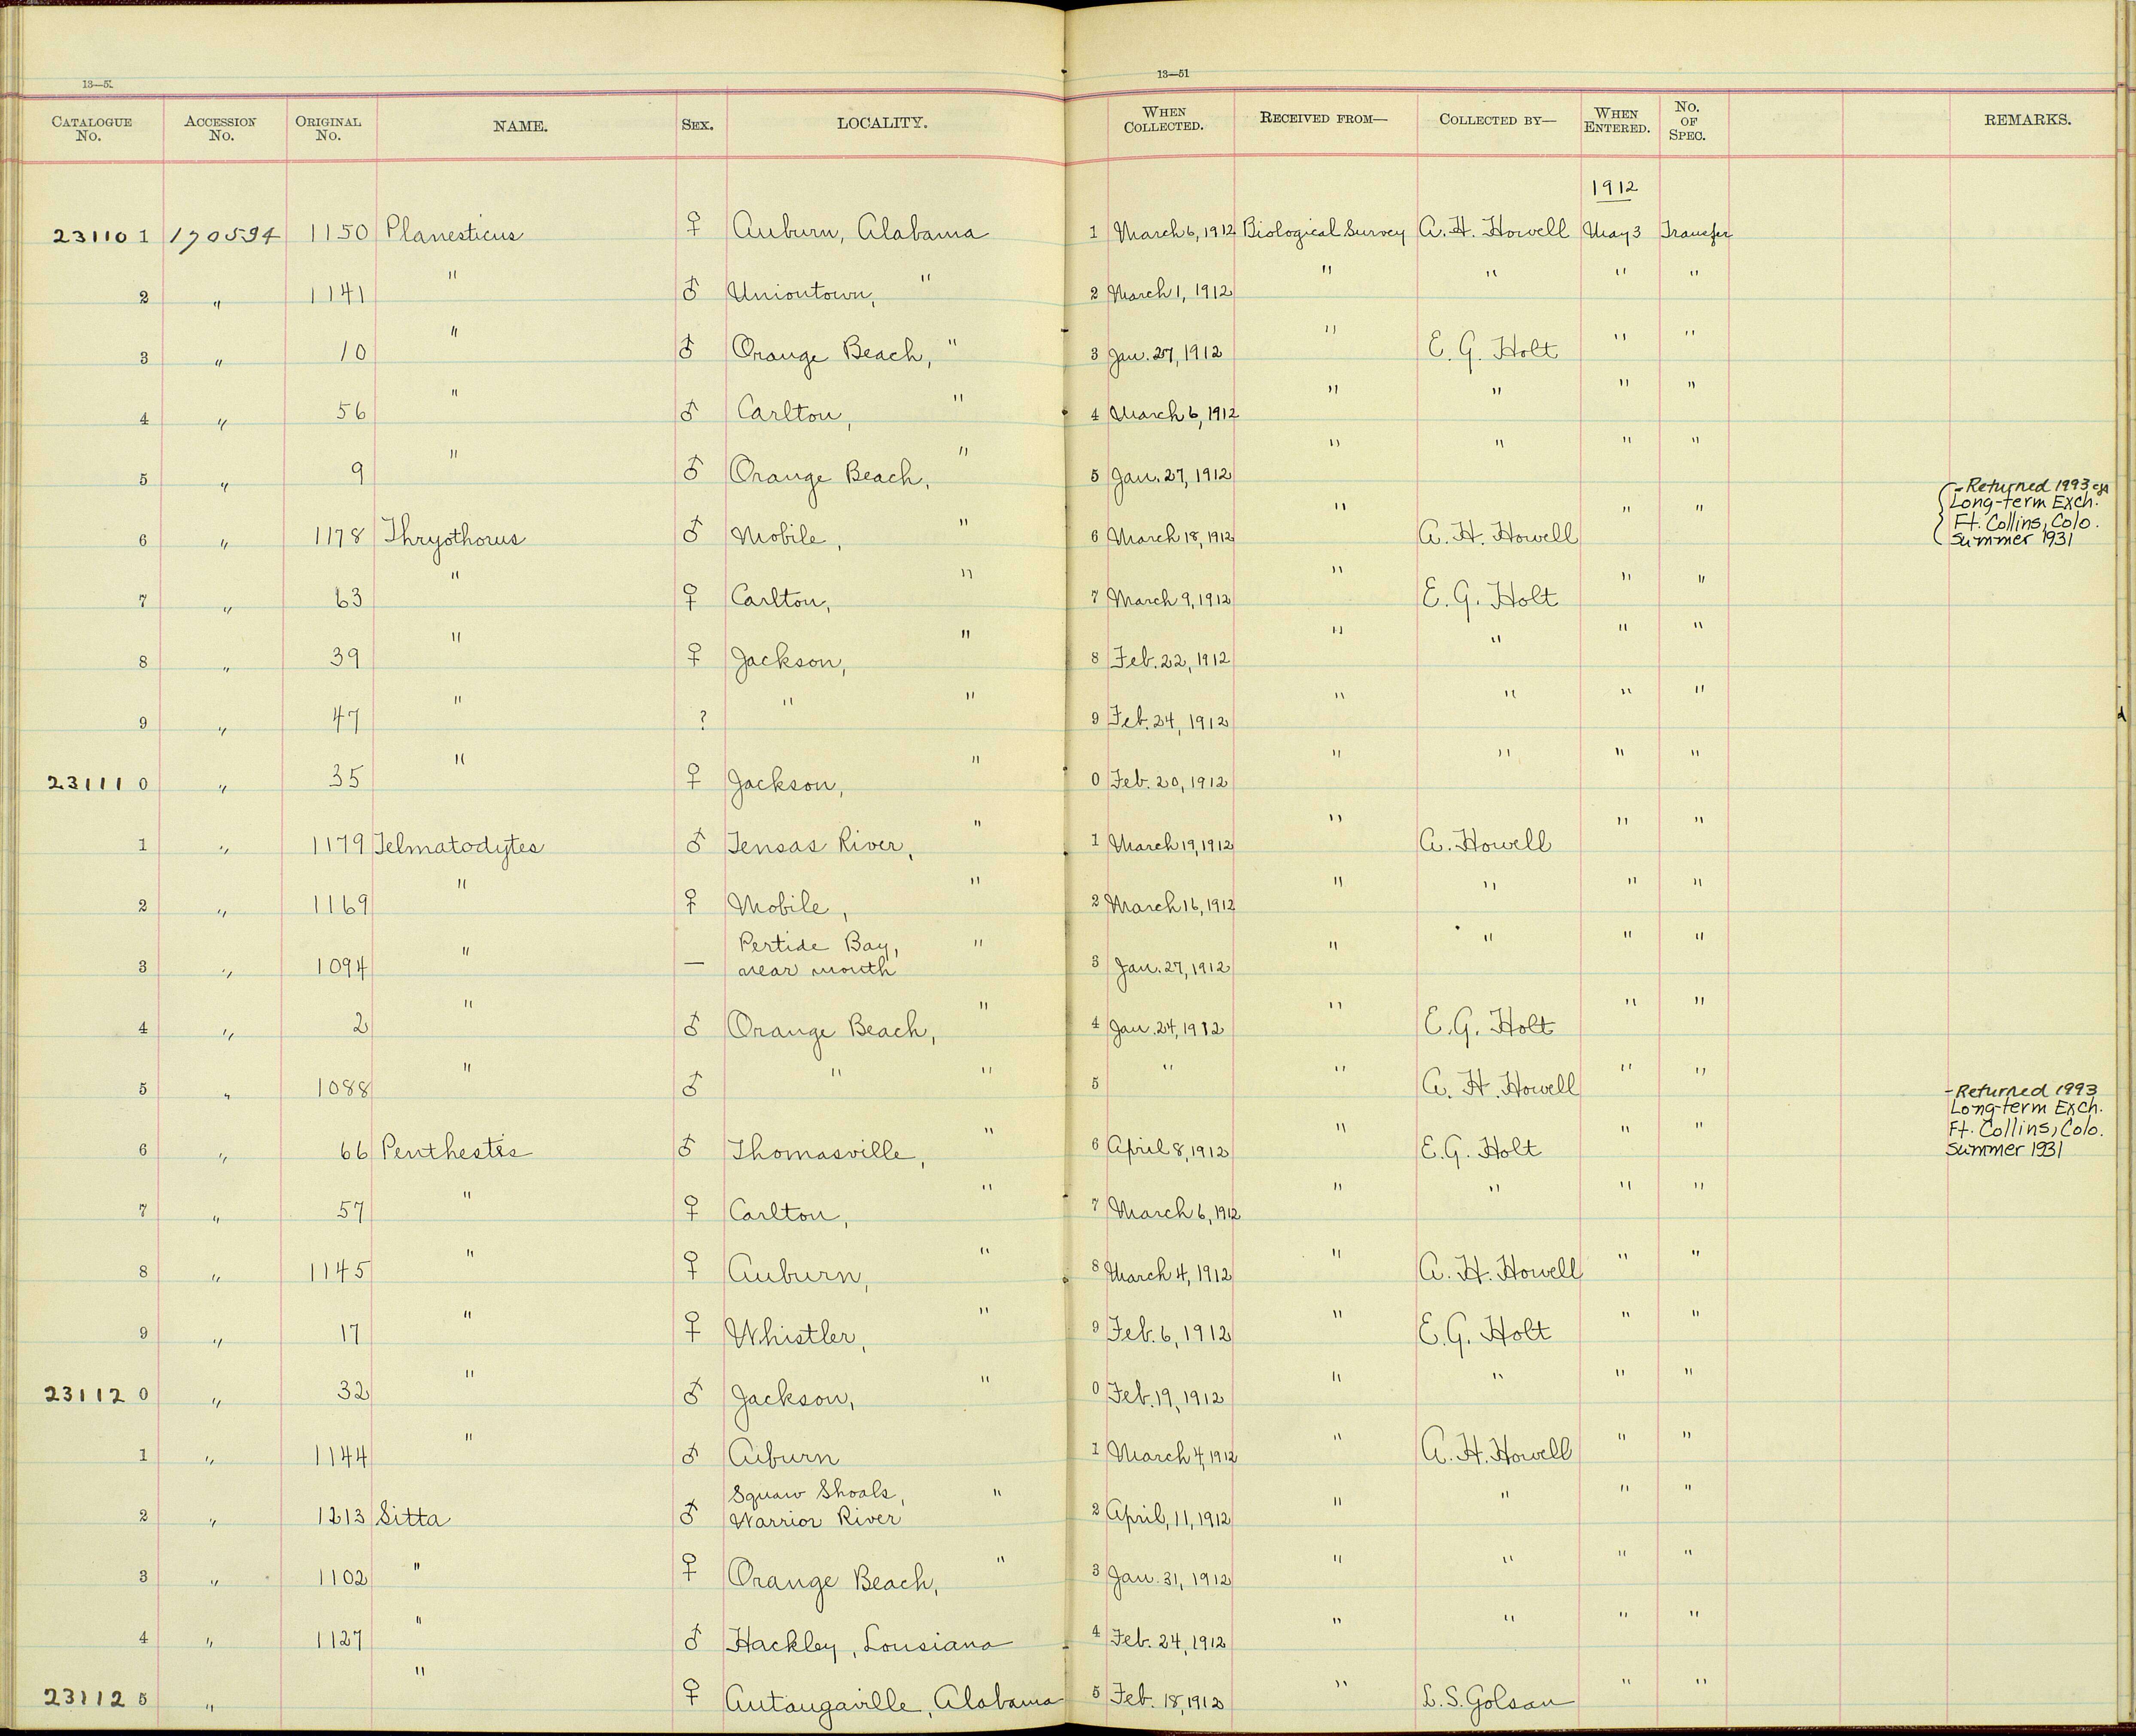 13—5.
13—51
CATALOGUE No. ACCESSION No. ORIGINAL No. NAME. SEX. LOCALITY. WHEN COLLECTED. RECEIVED FROM— COLLECTED BY— WHEN ENTERED. No. OF SPEC. REMARKS.
1912
231101 170594 1150 Planesticus ♀ Auburn, Alabama 1 March 6, 1912 Biological Survey A. H. Howell May 3 Transfer
2 " 1141 " ♂ Uniontown, " 2 March 1, 1912 " " " "
3 " 10 " ♂ Orange Beach, " 3 Jan. 27, 1912 " E. G. Holt " "
4 " 56 " ♂ Carlton, " 4 March 6, 1912 " " " "
5 " 9 " ♂ Orange Beach, " 5 Jan. 27, 1912 " " " "
6 " 1178 Thryothorus ♂ Mobile, " 6 March 18, 1912 " A. H. Howell " " - Returned 1993
Long-term Exch.
Ft. Collins, Colo.
Summer 1931
7 " 63 " ♀ Carlton, " 7 March 9, 1912 " E. G. Holt " "
8 " 39 " ♀ Jackson, " 8 Feb. 22, 1912 " " " "
9 " 47 " ? " " 9 Feb. 24, 1912 " " " "
231110 " 35 " ♀ Jackson, " 0 Feb. 20, 1912 " " " "
1 " 1179 Telmatodytes ♂ Tensas River, " 1 March 19, 1912 " A. Howell " "
2 " 1169 " ♀ Mobile, " 2 March 16, 1912 " " " "
3 " 1094 " — Pertide Bay, near mouth " 3 Jan. 27, 1912 " " " "
4 " 2 " ♂ Orange Beach, " 4 Jan. 24, 1912 " E. G. Holt " "
5 " 1088 " ♂ " " 5 " " A. H. Howell " "
6 " 66 Penthestes ♂ Thomasville, " 6 April 8, 1912 " E. G. Holt " " - Returned 1993
Long-term Exch.
Ft. Collins, Colo.
Summer 1931
7 " 57 " ♀ Carlton, " 7 March 6, 1912 " " " "
8 " 1145 " ♀ Auburn, " 8 March 4, 1912 " A. H. Howell " "
9 " 17 " ♀ Whistler, " 9 Feb. 6, 1912 " E. G. Holt " "
231120 " 32 " ♂ Jackson, " 0 Feb. 19, 1912 " " " "
1 " 1144 " ♂ Auburn 1 March 4, 1912 " A. H. Howell " "
2 " 1213 Sitta ♂ Squaw Shoals, Warrior River " 2 April, 11, 1912 " " " "
3 " 1102 " ♀ Orange Beach, " 3 Jan. 31, 1912 " " " "
4 " 1127 " ♂ Hackley, Lousiana 4 Feb. 24, 1912 " " " "
231125 " " ♀ Autaugaville, Alabama 5 Feb. 18, 1912 " L. S. Golsan " "